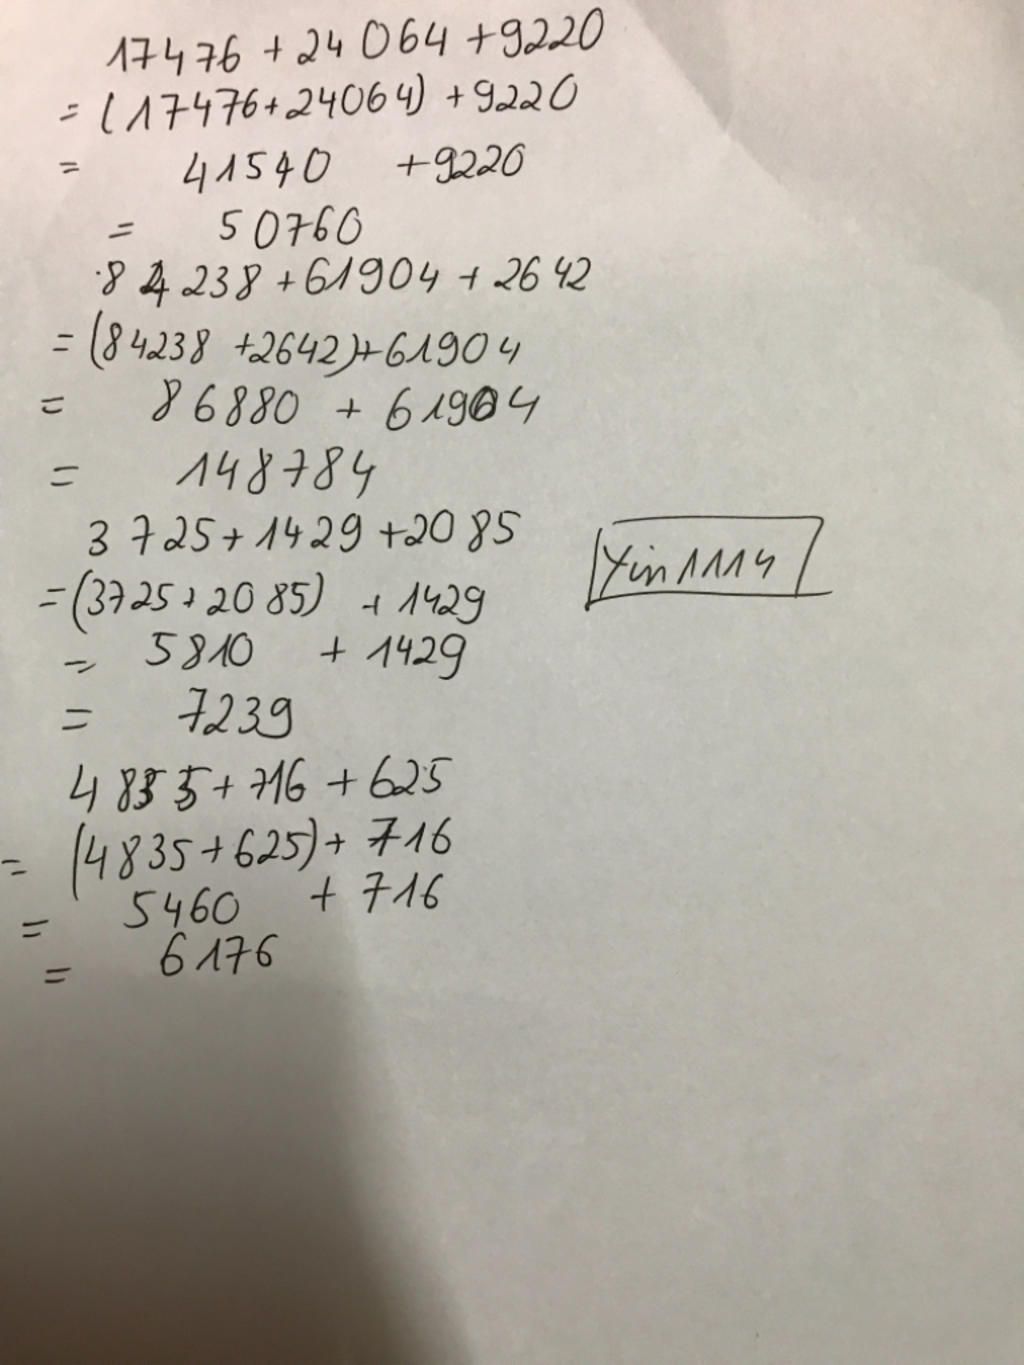 17476 + 24064 + 9220
= (17476 + 24064) + 9220
= 41540 + 9220
= 50760
84238 + 61904 + 2642
= (84238 + 2642) + 61904
= 86880 + 61904
= 148784
3725 + 1429 + 2085
= (3725 + 2085) + 1429
= 5810 + 1429
= 7239
4835 + 716 + 625
= (4835 + 625) + 716
= 5460 + 716
= 6176
Yin1114